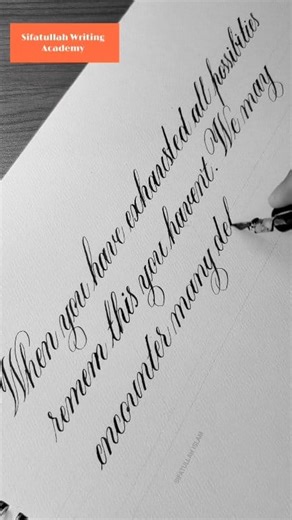 Sifatullah Writing
Academy
When you have exhausted all possibilities
remem this you haven't. We may
encounter many def
SIFATULLAH ISLAM